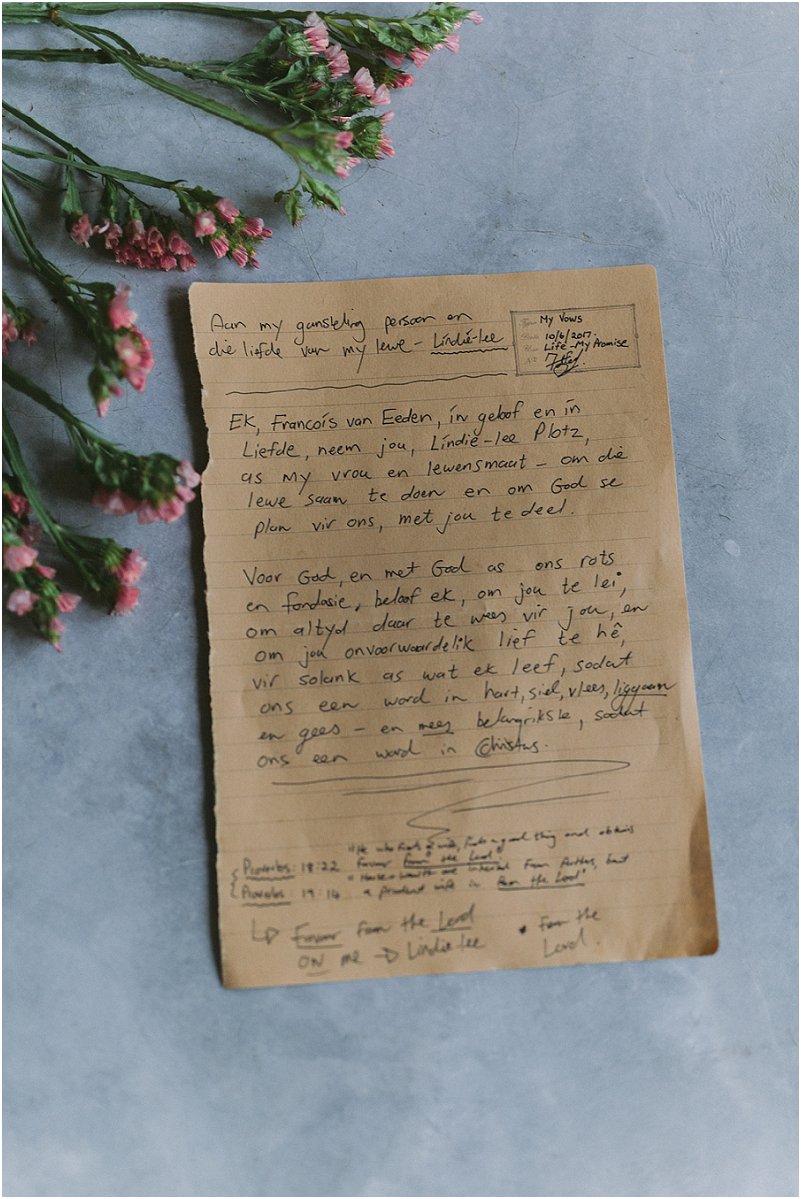 Aan my gunsteling persoon en
die liefde van my lewe - Lindié-lee
My Vows
10/6/2017.
Life - My Promise
Ek, Francois van Eeden, in geloof en in
Liefde, neem jou, Lindié-lee Plotz,
as my vrou en lewensmaat - om die
lewe saam te doen en om God se
plan vir ons, met jou te deel.
Voor God, en met God as ons rots
en fondasie, beloof ek, om jou te lei,
om altyd daar te wees vir jou, en
om jou onvoorwaardelik lief te hê,
vir solank as wat ek leef, sodat
ons een word in hart, siel, vlees, liggaam
en gees - en mees belangrikste, sodat
ons een word in Christus.
"He who finds a wife, finds a good thing and obtains
Proverbs: 18:22 Favour from the Lord"
"House + wealth are inherited from Fathers, but
Proverbs: 19:14 a prudent wife is from the Lord"
↳ Favour from the Lord
ON me → Lindie-lee
• from the
Lord.